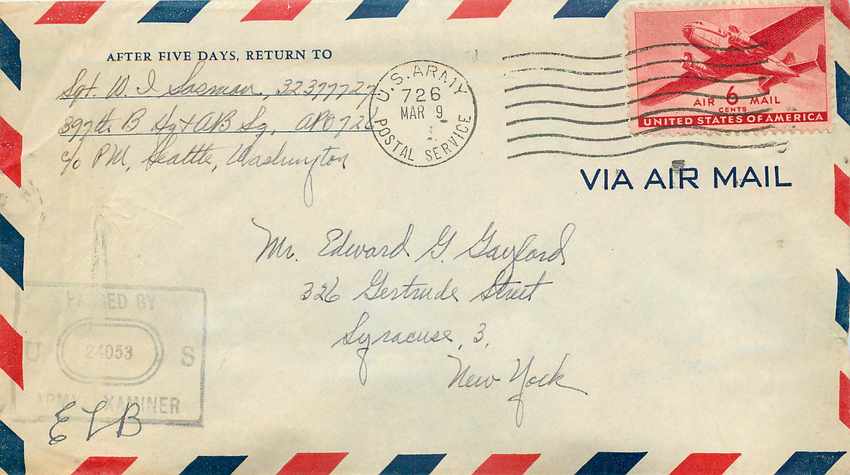 AFTER FIVE DAYS, RETURN TO
Sgt. W. I Sosman, 32377727
397th B Hq + AB Sq. APO 726
c/o PM, Seattle, Washington
U.S. ARMY
726
MAR 9
POSTAL SERVICE
AIR 6 MAIL
CENTS
UNITED STATES OF AMERICA
VIA AIR MAIL
Mr. Edward G. Gaylord
326 Gertrude Street
Syracuse, 3,
New York
PASSED BY
U 24053 S
ARMY EXAMINER
ELB